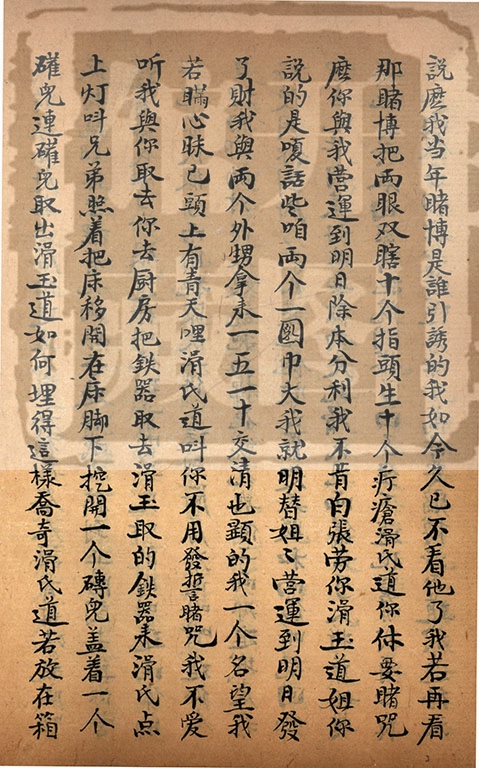 說麽我当年賭博是誰引誘的我如今久已不看他了我若再看
那賭博把両眼双瞎十个指頭生十个疔瘡滑氏道你休要賭咒
麽你與我营運到明日除本分利我不肯白張劳你滑玉道姐你
說的是嗄話些咱両个一團巾大我就明替姐〻营運到明日發
了財我與両个外甥拿来一五一十交清也顕的我一个名望我
若瞞心昧已頭上有青天哩滑氏道叫你不用發誓賭咒我不爱
听我與你取去你去厨房把鉄器取去滑玉取的鉄器来滑氏点
上灯呌兄弟照着把床移開在床脚下挖開一个磚兒盖着一个
確兒連確兒取出滑玉道如何埋得這樣喬奇滑氏道若放在箱